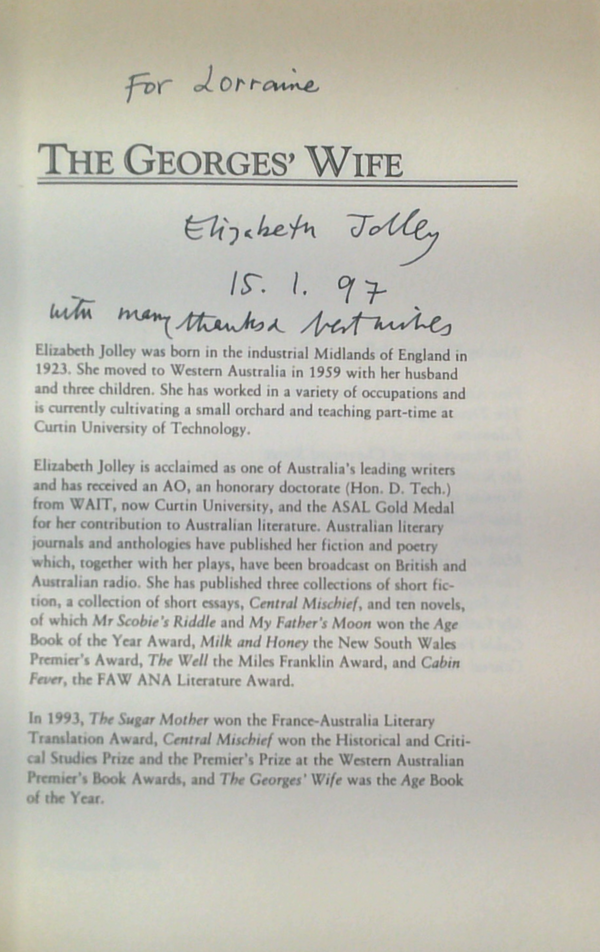 For Lorraine
THE GEORGES' WIFE
Elizabeth Jolley
15. 1. 97
with many thanks & best wishes
Elizabeth Jolley was born in the industrial Midlands of England in
1923. She moved to Western Australia in 1959 with her husband
and three children. She has worked in a variety of occupations and
is currently cultivating a small orchard and teaching part-time at
Curtin University of Technology.
Elizabeth Jolley is acclaimed as one of Australia's leading writers
and has received an AO, an honorary doctorate (Hon. D. Tech.)
from WAIT, now Curtin University, and the ASAL Gold Medal
for her contribution to Australian literature. Australian literary
journals and anthologies have published her fiction and poetry
which, together with her plays, have been broadcast on British and
Australian radio. She has published three collections of short fic-
tion, a collection of short essays, Central Mischief, and ten novels,
of which Mr Scobie's Riddle and My Father's Moon won the Age
Book of the Year Award, Milk and Honey the New South Wales
Premier's Award, The Well the Miles Franklin Award, and Cabin
Fever, the FAW ANA Literature Award.
In 1993, The Sugar Mother won the France-Australia Literary
Translation Award, Central Mischief won the Historical and Criti-
cal Studies Prize and the Premier's Prize at the Western Australian
Premier's Book Awards, and The Georges' Wife was the Age Book
of the Year.